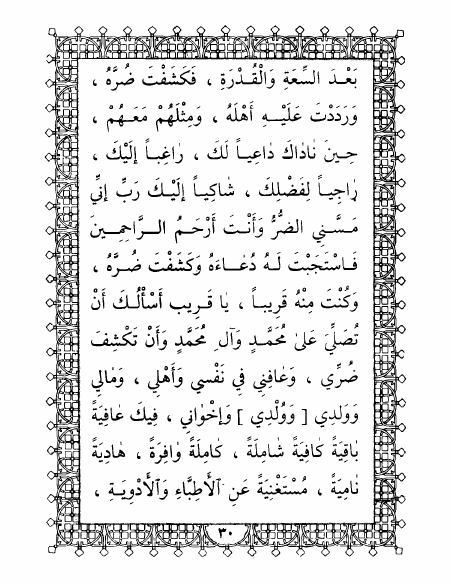 بَعْدَ السِّعَةِ وَالْقُدْرَةِ ، فَكَشَفْتَ ضُرَّهُ ،
وَرَدَدْتَ عَلَيْهِ أَهْلَهُ ، وَمِثْلَهُمْ مَعَهُمْ ،
حِينَ نٰادٰاكَ دٰاعِياً لَكَ ، رٰاغِباً إِلَيْكَ ،
رٰاجِياً لِفَضْلِكَ ، شٰاكِياً إِلَيْكَ رَبِّ إِنِّي
مَسَّنِيَ الضُّرُّ وَأَنْتَ أَرْحَمُ الرَّاحِمِينَ
فَاسْتَجَبْتَ لَهُ دُعٰاءَهُ وَكَشَفْتَ ضُرَّهُ ،
وَكُنْتَ مِنْهُ قَرِيباً ، يٰا قَرِيب أَسْأَلُكَ أَنْ
تُصَلِّيَ عَلىٰ مُحَمَّدٍ وَآلِ مُحَمَّدٍ وَأَنْ تَكْشِفَ
ضُرِّي ، وَعٰافِنِي فِي نَفْسِي وَأَهْلِي ، وَمٰالِي
وَوَلَدِي [ وَوُلْدِي ] وَإِخْوٰانِي ، فِيكَ عٰافِيَةً
بٰاقِيَةً كٰافِيَةً شٰامِلَةً ، كٰامِلَةً وٰافِرَةً ، هٰادِيَةً
نٰامِيَةً ، مُسْتَغْنِيَةً عَنِ ٱلْأَطِبَّاءِ وَٱلْأَدْوِيَةِ ،
٣٠